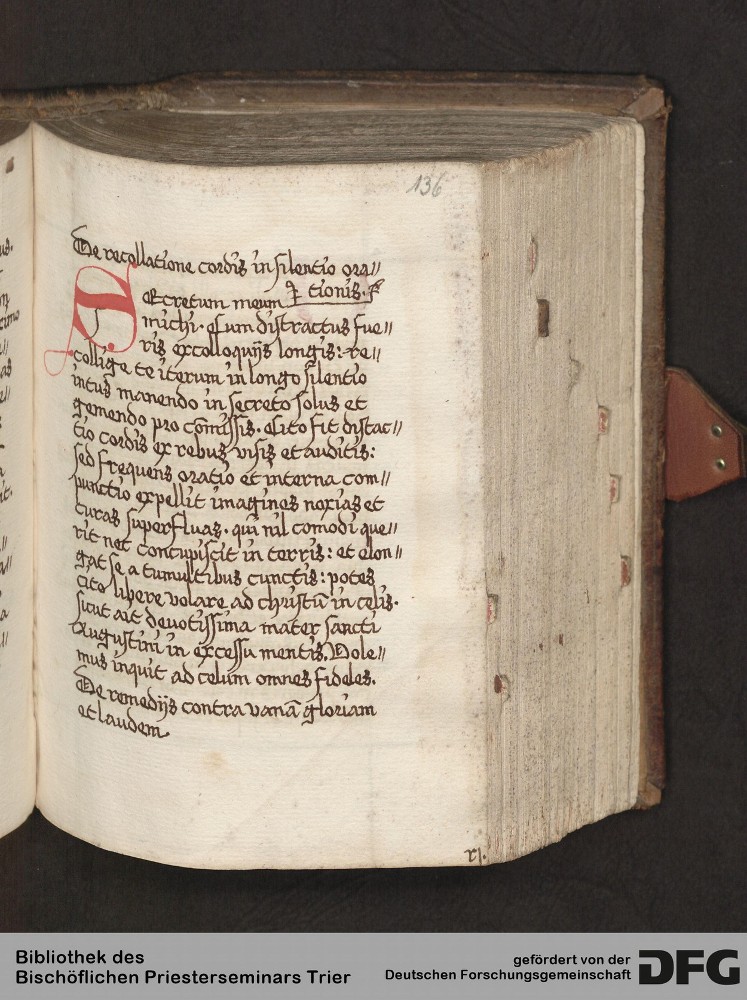 136
De recollatione cordis in silentio ora//
tionis.
SEcretum meum
michi. Cum distractus fue//
ris ex colloquijs longis: re//
collige te iterum in longo silentio
intus manendo in secreto solus et
gemendo pro cōmissis. Cito fit distac//
tio cordis ex rebus visis et auditis:
sed frequens oratio et interna com//
punctio expellit imagines noxias et
curas superfluas. qui nil comodi que//
rit nec concupiscit in terris: et elon//
gat se a tumultibus cunctis: potes
cito libere volare ad christū in celis.
sicut ait devotissima mater sancti
Augustini in excessu mentis. Vole//
mus inquit ad celum omnes fideles.
De remedijs contra vanā gloriam
et laudem.
rj.
Bibliothek des
Bischöflichen Priesterseminars Trier
gefördert von der
Deutschen Forschungsgemeinschaft
DFG